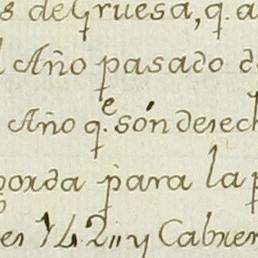 s de Gruesa, q. a
l Año pasado d
Año q.e són desech
borda para la p
en 142,, y Cabrer